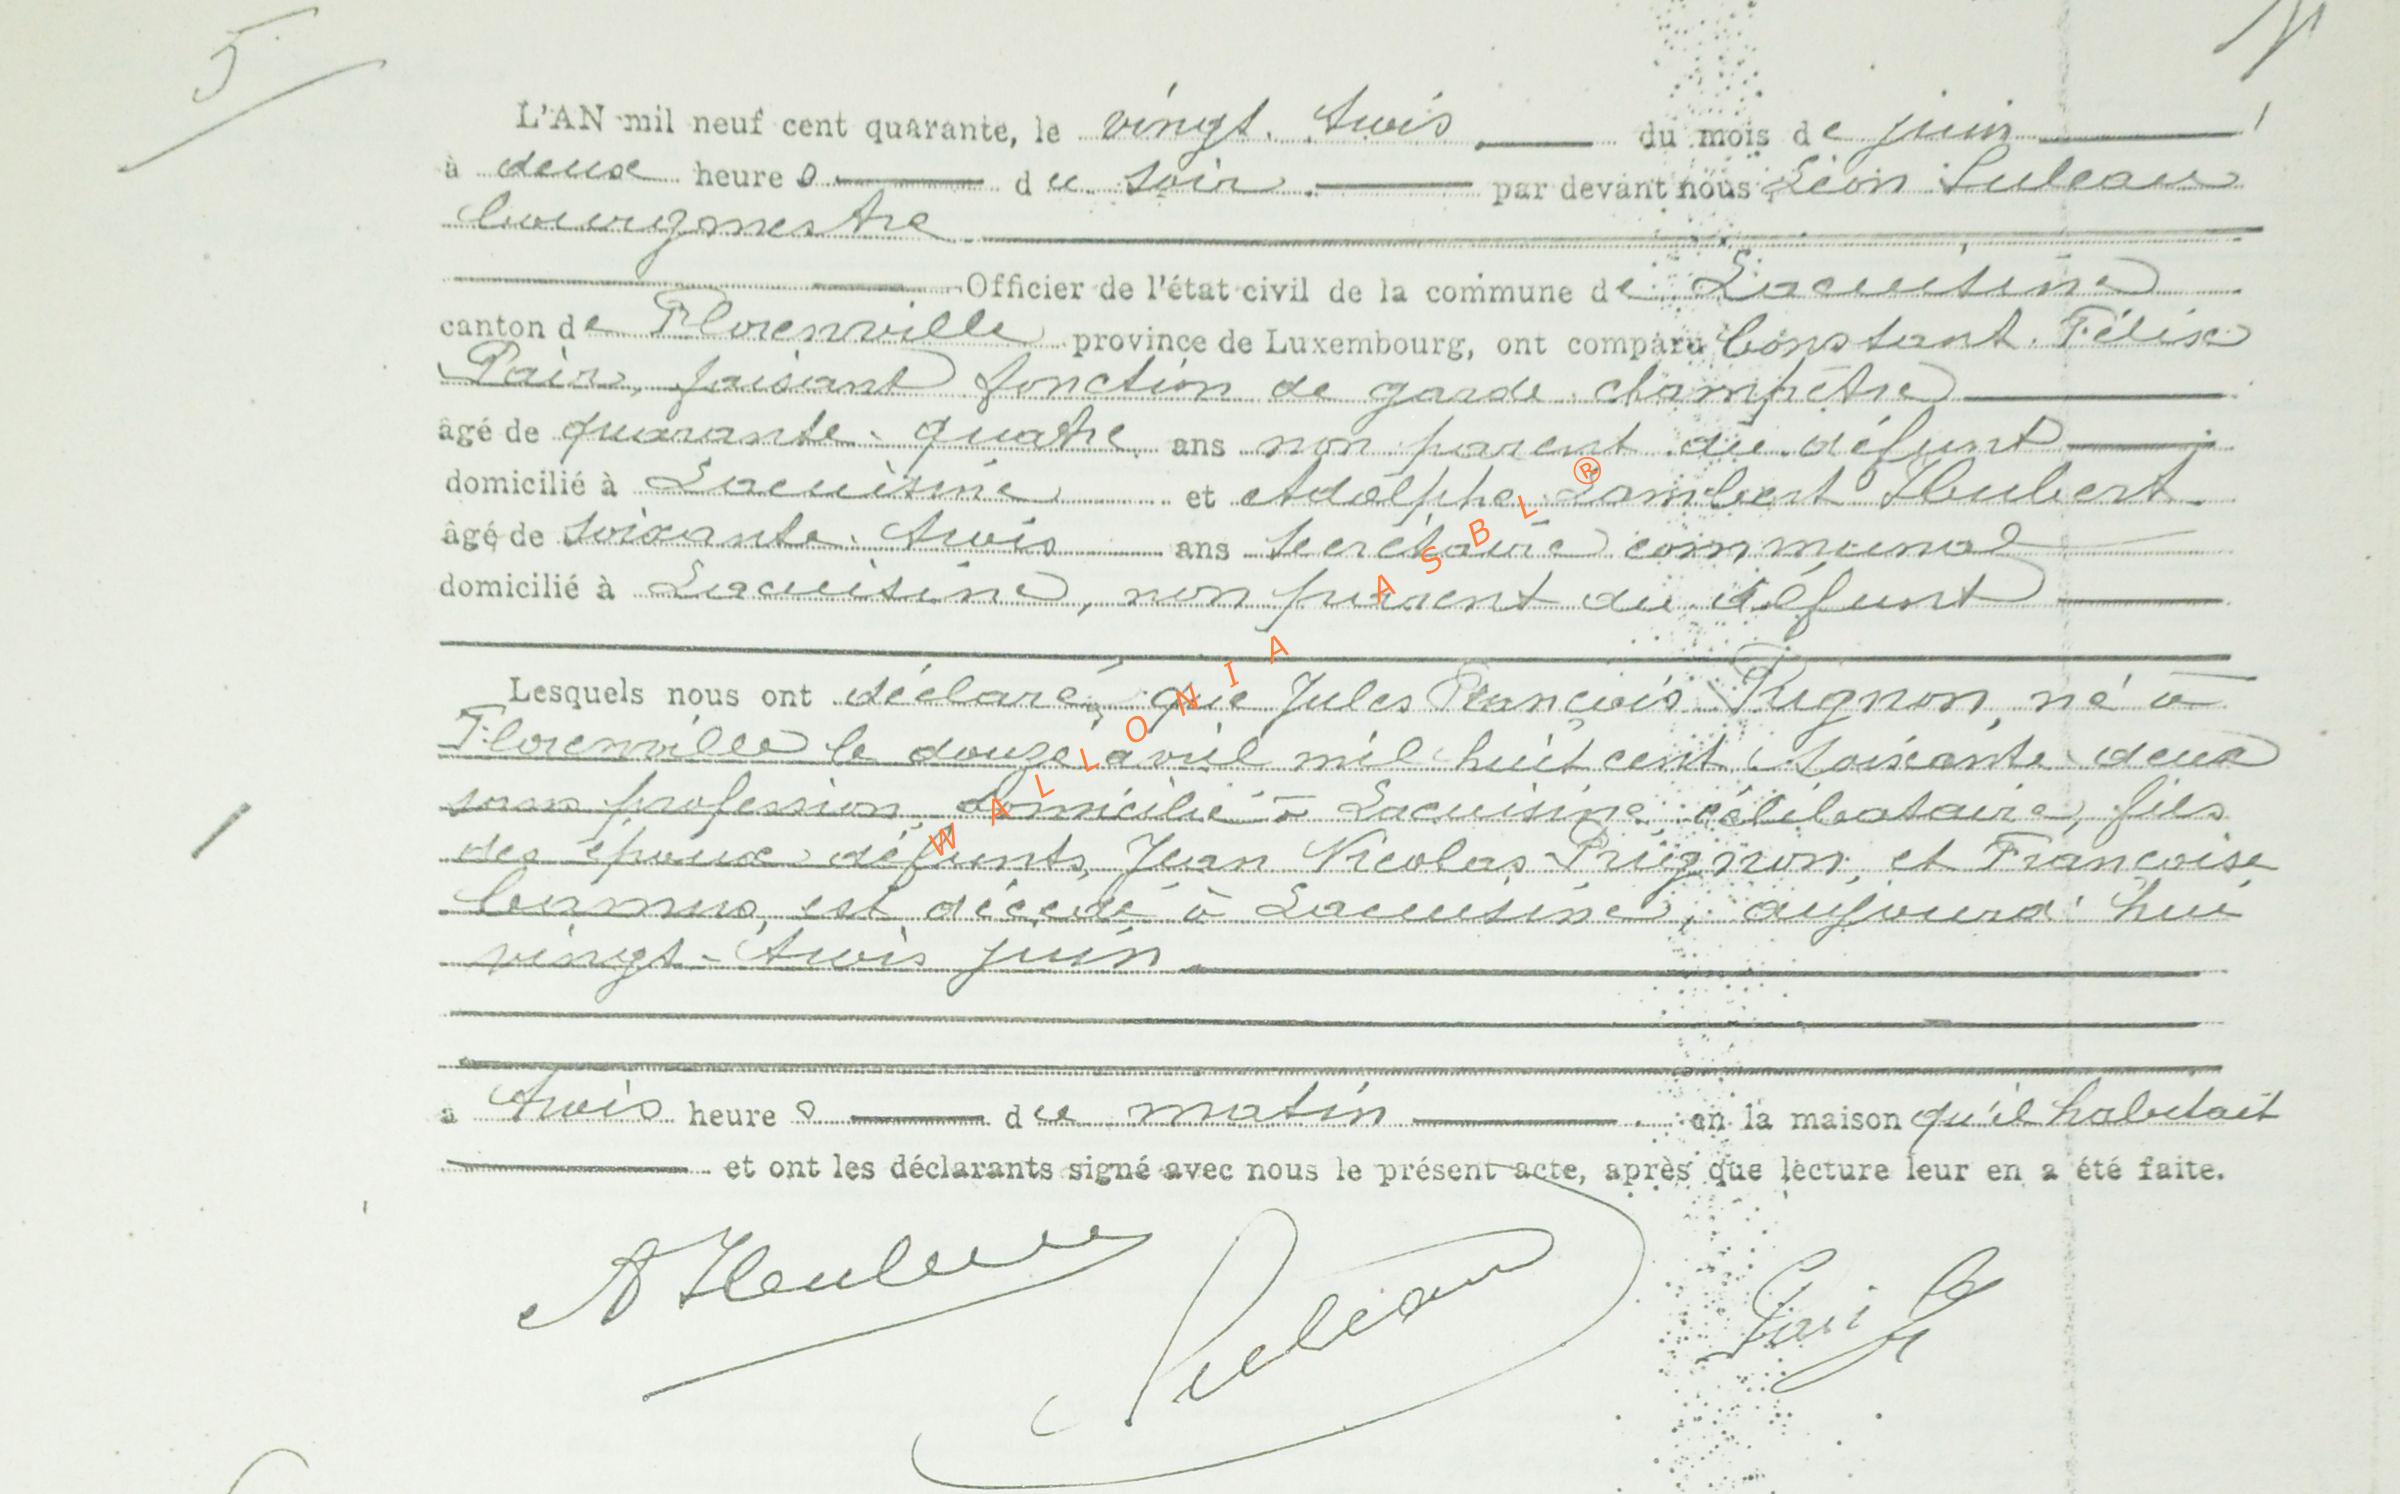 5
L'AN mil neuf cent quarante, le vingt-trois du mois de juin
à deux heures du soir par devant nous Léon Suleau
bourgmestre
Officier de l'état civil de la commune de Lacuisine
canton de Florenville province de Luxembourg, ont comparu Constant Félix
Pair, faisant fonction de garde champêtre
âgé de quarante-quatre ans non parent du défunt
domicilié à Lacuisine et Adolphe Lambert Hubert
âgé de soixante-trois ans secrétaire communal
domicilié à Lacuisine, non parent du défunt
Lesquels nous ont déclaré que Jules François Prignon, né à
Florenville le douze avril mil huit cent soixante-deux
sans profession, domicilié à Lacuisine, célibataire, fils
des époux défunts, Jean Nicolas Prignon et Françoise
est décédé à Lacuisine, aujourd'hui
vingt-trois juin
à trois heures du matin en la maison qu'il habitait
et ont les déclarants signé avec nous le présent acte, après que lecture leur en a été faite.
A Hubert Suleau Pair
WALLONIA ASBL ®